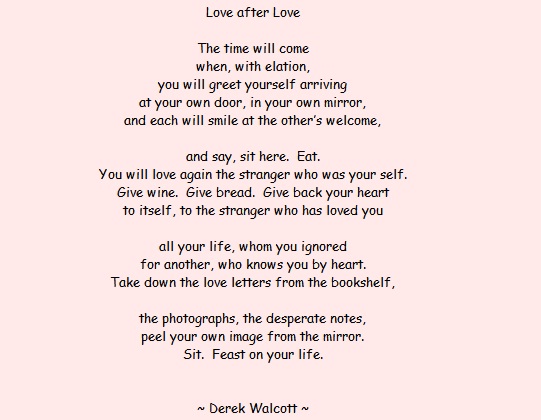 Love after Love
The time will come
when, with elation,
you will greet yourself arriving
at your own door, in your own mirror,
and each will smile at the other's welcome,
and say, sit here.  Eat.
You will love again the stranger who was your self.
Give wine.  Give bread.  Give back your heart
to itself, to the stranger who has loved you
all your life, whom you ignored
for another, who knows you by heart.
Take down the love letters from the bookshelf,
the photographs, the desperate notes,
peel your own image from the mirror.
Sit.  Feast on your life.
~ Derek Walcott ~